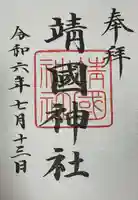 奉拝
靖國神社
令和六年七月十三日
靖國
神社